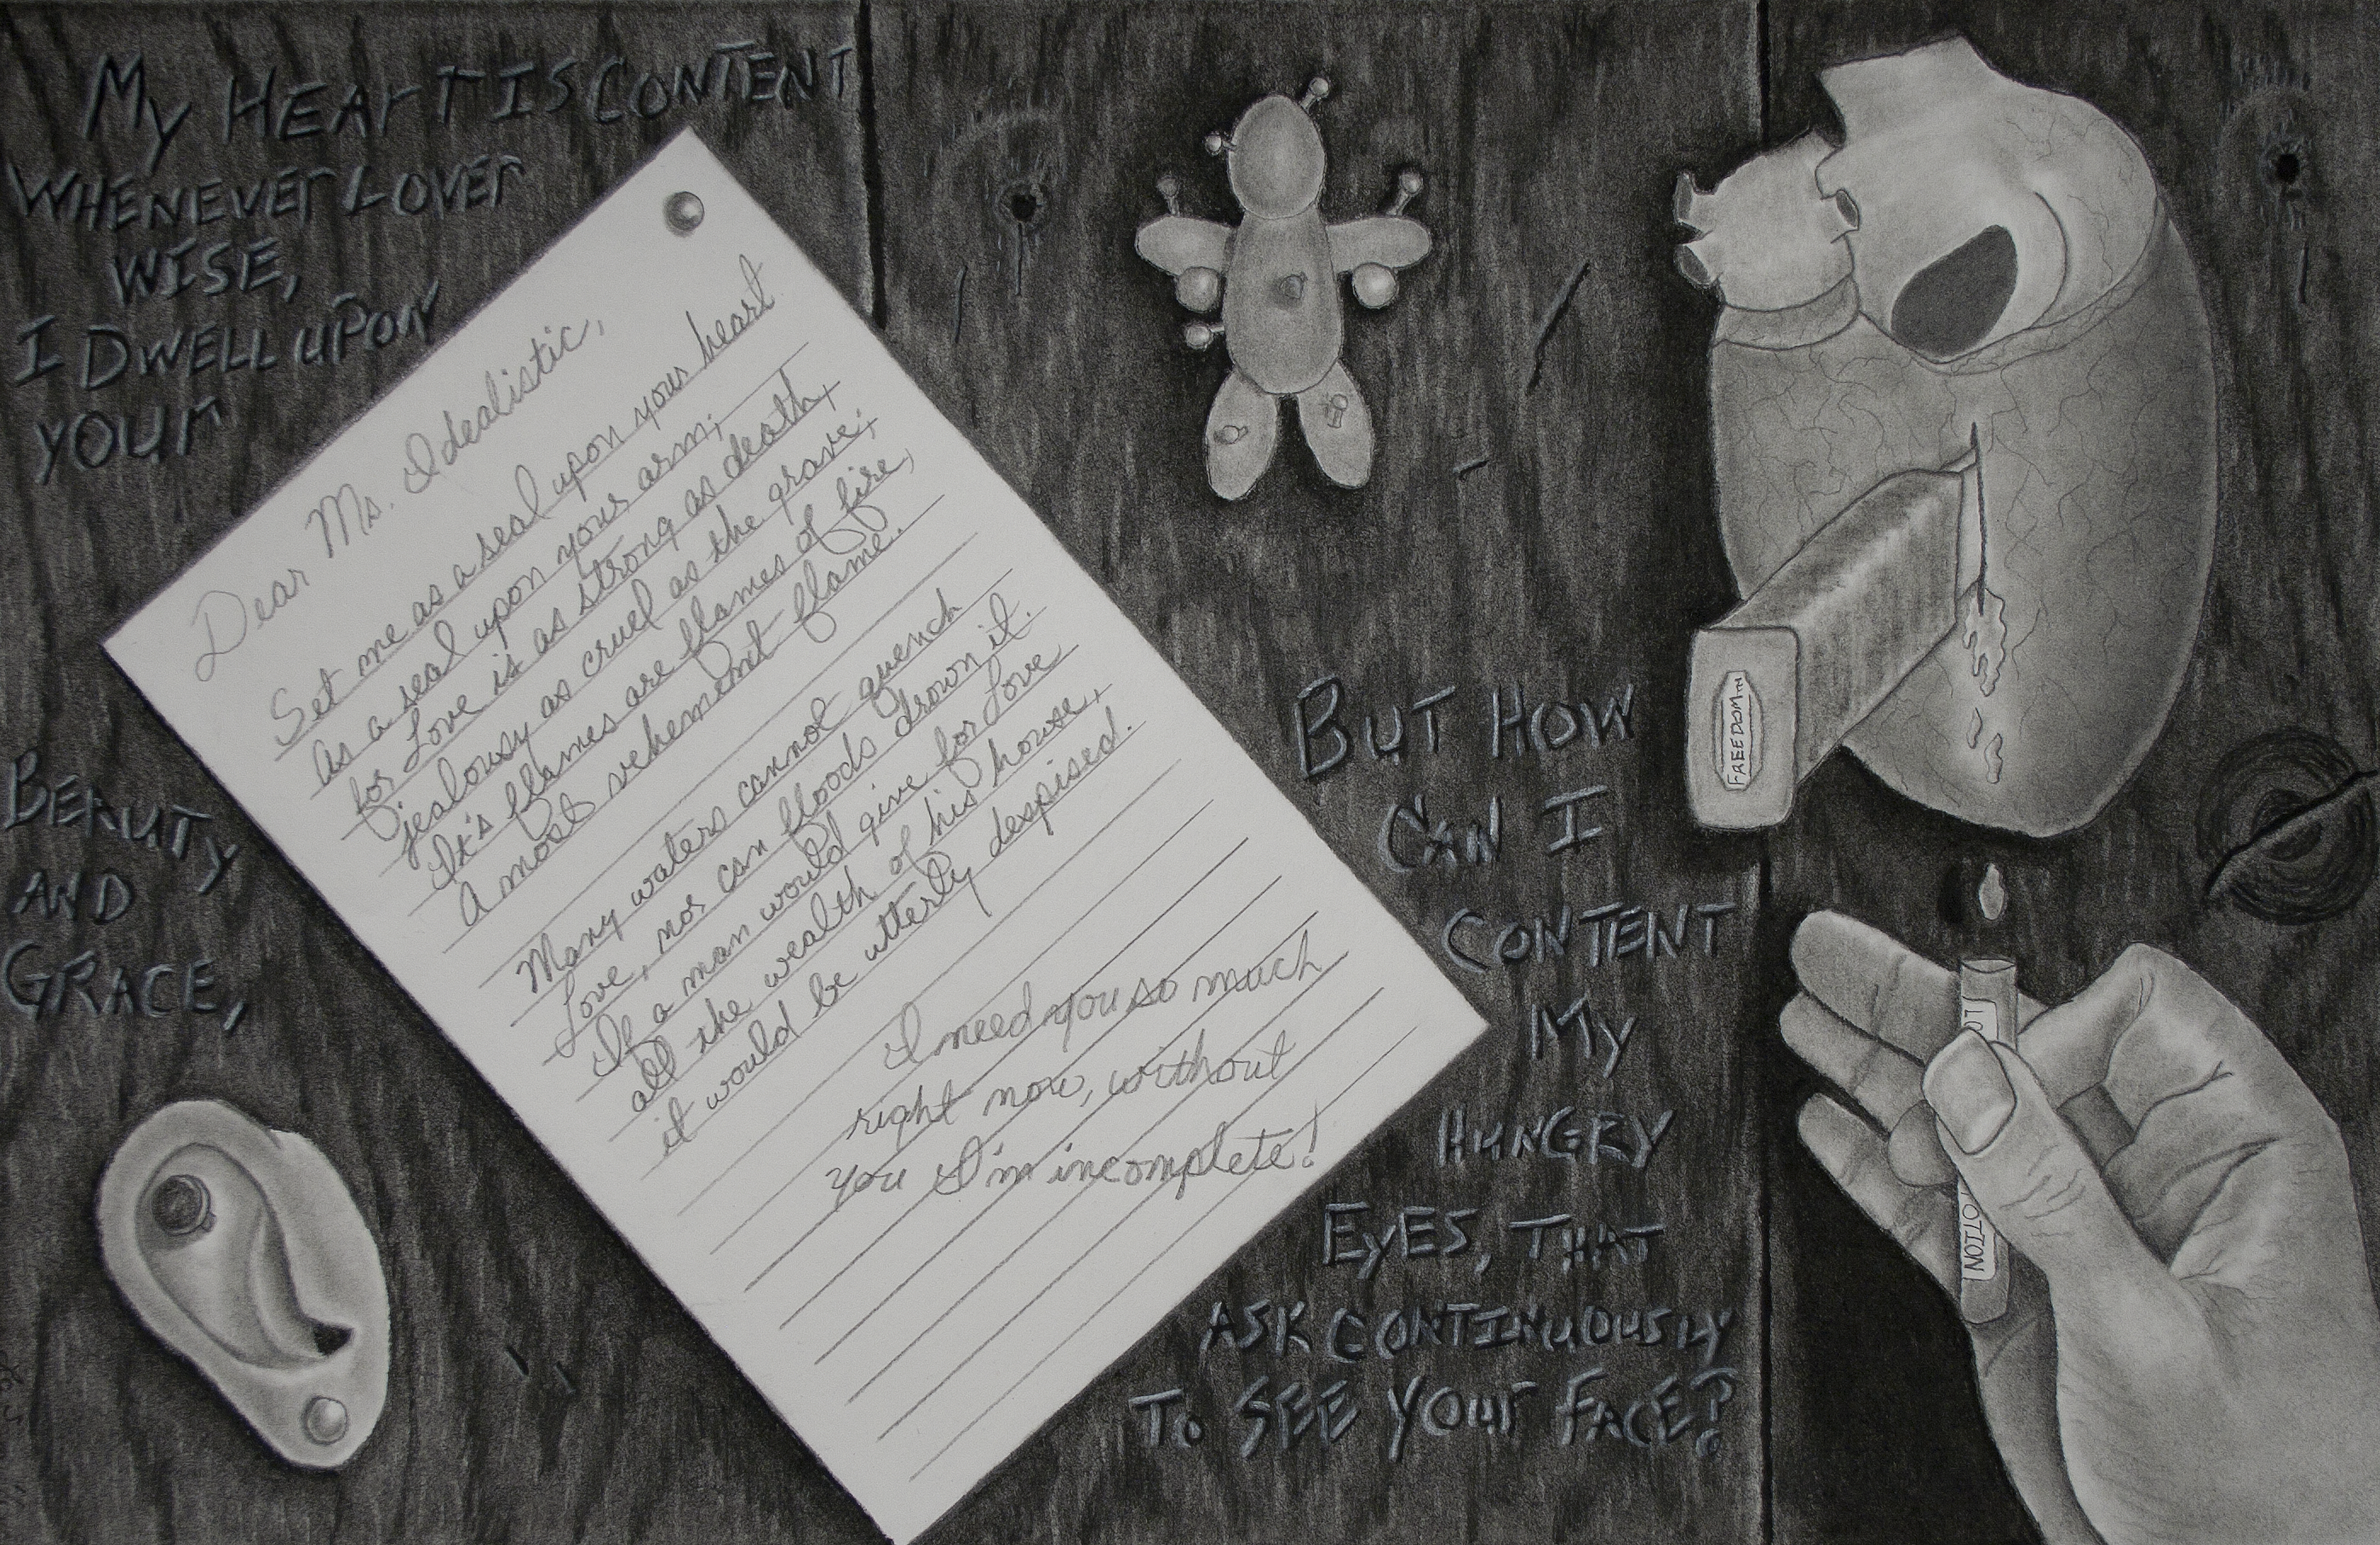 My HEArT IS CONTENT
WHENEVEr LOVEr
WISE,
I DWELL UPON
yOUr
BEAUTy
AND
GRACE,
Dear Ms. Idealistic,
Set me as a seal upon your heart
As a seal upon your arm;
for Love is as strong as death,
jealousy as cruel as the grave;
It's flames are flames of fire,
A most vehement flame.
Many waters cannot quench
Love, nor can floods drown it.
If a man would give for Love
all the wealth of his house,
it would be utterly despised.
I need you so much
right now, without
you I'm incomplete!
BUT HOW
CAN I
CONTENT
My
HUNGRY
EyES, THAT
ASK CONTINUOUSLY
TO SEE yOUr FACE?
FREEDOM™